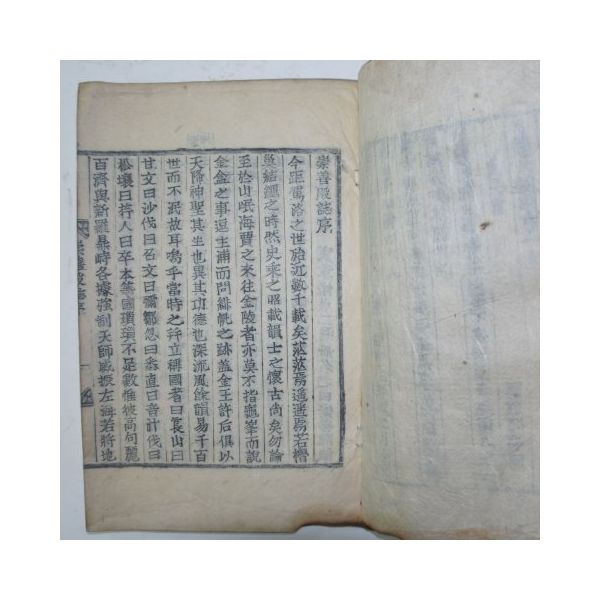 崇善殿誌序
今距駕洛之世殆近數千載矣茫茫焉遥遥焉若橧
巢結繩之時然史乘之昭載韻士之懷古尚矣勿論
至於山氓海賈之來往金陵者亦莫不指龜峯而說
金盒之事逗主浦而問緋帆之跡盖金王許后俱以
天降神聖其生也異其功德也深流風餘韻易千百
世而不泯故耳嗚乎當時之幷立稱國者曰萇山曰
甘文曰沙伐曰召文曰彌鄒忽曰悉直曰音汁伐曰
松壤曰荇人曰卒本等國瑣瑣不足數惟彼高句麗
百濟與新羅鼎峙各據強制天師威振左海若將地
崇善殿誌序